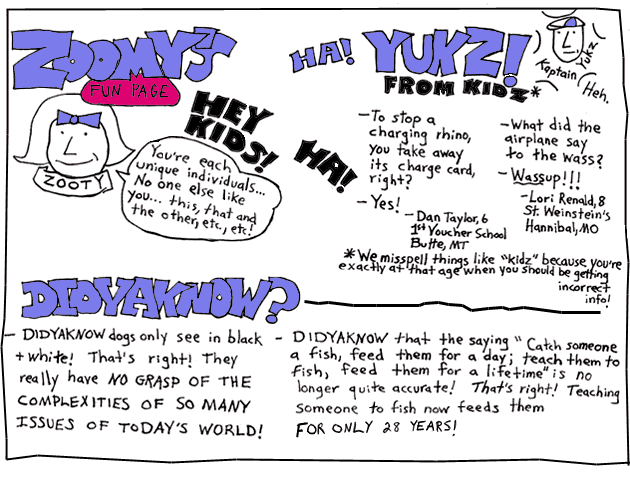 ZOOMY'S
FUN PAGE
HEY
KIDS!
ZOOTY
You're each
unique individuals...
No one else like
you... this, that and
the other, etc., etc!
HA!
YUKZ!
FROM KIDZ*
HA!
Kaptain YUKZ
Heh.
- To stop a
charging rhino,
you take away
its charge card,
right?
- Yes!
- Dan Taylor, 6
1st Voucher School
Butte, MT
- What did the
airplane say
to the wass?
- Wassup!!!
- Lori Renald, 8
St. Weinstein's
Hannibal, MO
*We misspell things like "kidz" because you're
exactly at that age when you should be getting
incorrect
info!
DIDYAKNOW?
- DIDYAKNOW dogs only see in black
+ white! That's right! They
really have NO GRASP OF THE
COMPLEXITIES OF SO MANY
ISSUES OF TODAY'S WORLD!
- DIDYAKNOW that the saying "Catch someone
a fish, feed them for a day; teach them to
fish, feed them for a lifetime" is no
longer quite accurate! That's right! Teaching
someone to fish now feeds them
FOR ONLY 28 YEARS!